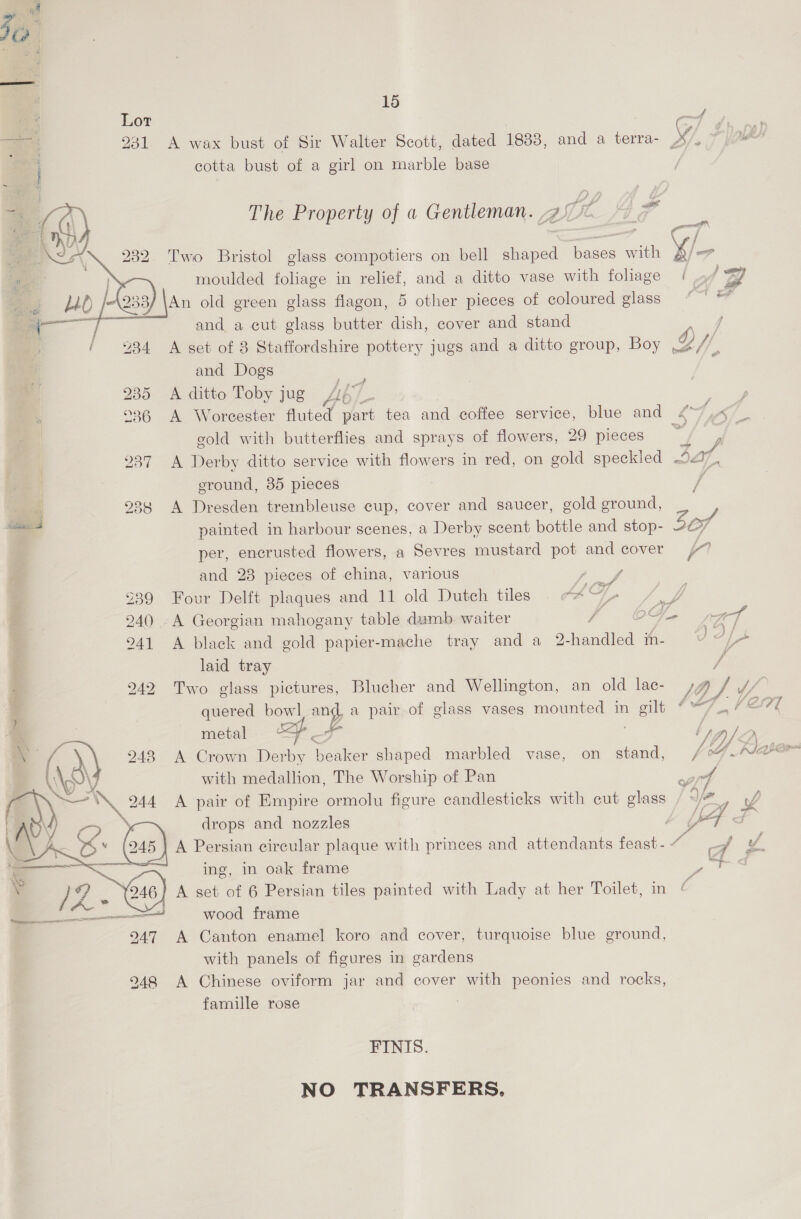 15
Lot
231 A wax bust of Sir Walter Scott, dated 1833, and a terra-
cotta bust of a girl on marble base
The Property of a Gentleman.
232 Two Bristol glass compotiers on bell shaped bases with
moulded foliage in relief, and a ditto vase with foliage
233 An old green glass flagon, 5 other pieces of coloured glass
and a cut glass butter dish, cover and stand
234 A set of 3 Staffordshire pottery jugs and a ditto group, Boy
and Dogs
235 A ditto Toby jug
236 A Worcester fluted part tea and coffee service, blue and
gold with butterflies and sprays of flowers, 29 pieces
237 A Derby ditto service with flowers in red, on gold speckled
ground, 35 pieces
238 A Dresden trembleuse cup, cover and saucer, gold ground,
painted in harbour scenes, a Derby scent bottle and stop-
per, encrusted flowers, a Sevres mustard pot and cover
and 23 pieces of china, various
239 Four Delft plaques and 11 old Dutch tiles
240 A Georgian mahogany table dumb waiter
241 A black and gold papier-mache tray and a 2-handled in-
laid tray
242 Two glass pictures, Blucher and Wellington, an old lac-
quered bowl and a pair of glass vases mounted in gilt
metal
243 A Crown Derby beaker shaped marbled vase, on stand,
with medallion, The Worship of Pan
244 A pair of Empire ormolu figure candlesticks with cut glass
drops and nozzles
245 A Persian circular plaque with princes and attendants feast-
ing, in oak frame
12 246 A set of 6 Persian tiles painted with Lady at her Toilet, in
wood frame
247 A Canton enamel koro and cover, turquoise blue ground,
with panels of figures in gardens
248 A Chinese oviform jar and cover with peonies and rocks,
famille rose
FINIS.
NO TRANSFERS.